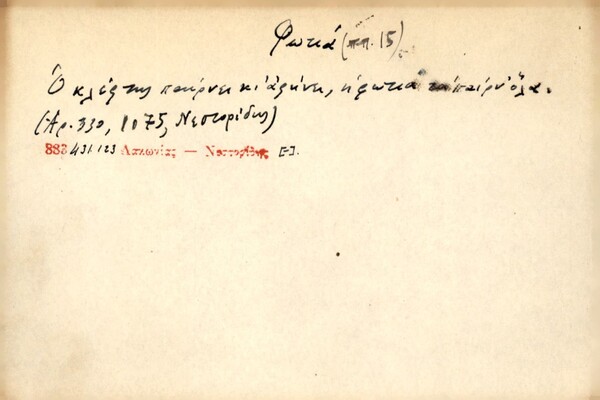 Φωτιά (παπ. 15)
Ὁ κλέφτης παίρνει κι' ἀφήνει, ἡ φωτιὰ τὰ παίρν' ὅλα.
(Ἀρ. 330, 1075, Νεστορίδης)
888 431.123 Λακωνίας — Νεστορίδης [-].